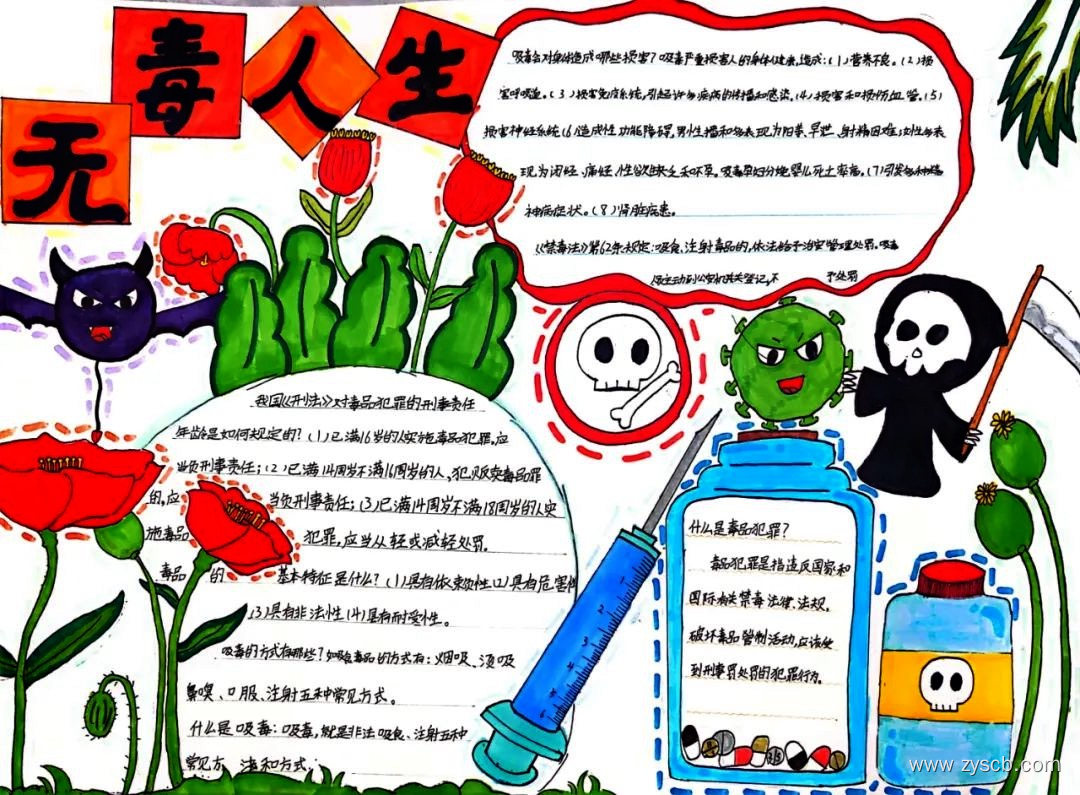 无毒人生
吸毒会对身体造成哪些损害?吸毒严重损害人的身体健康,造成:(1)营养不良。(2)损
害呼吸道。(3)损害免疫系统,引起许多疾病的传播和感染。(4)损害和损伤血管。(5)
损害神经系统(6)造成性功能障碍,男性播和多表现为阳萎、早泄、射精困难;女性多表
现为闭经、痛经、性欲缺乏和不孕。吸毒孕妇分娩婴儿死亡率高。(7)引发各种精
神病症状。(8)肾脏疾患。
《禁毒法》第62条规定:吸食、注射毒品的,依法给予治安管理处罚。吸毒
主动到公安机关登记,不 予处罚
我国《刑法》对毒品犯罪的刑事责任
年龄是如何规定的?(1)已满16岁的人实施毒品犯罪,应
当负刑事责任;(2)已满14周岁不满16周岁的人,犯贩卖毒品罪
的,应 当负刑事责任;(3)已满14周岁不满18周岁的人实
施毒品 犯罪,应当从轻或减轻处罚。
毒品 的 基本特征是什么?(1)具有依赖性(2)具有危害性
(3)具有非法性(4)具有耐受性。
吸毒的方式有哪些?如吸食毒品的方式有:烟吸、烫吸
鼻嗅、口服、注射五种常见方式。
什么是吸毒:吸毒,就是非法吸食、注射五种
常见方 法和方式。
什么是毒品犯罪?
毒品犯罪是指违反国家和
国际有关禁毒法律、法规,
破坏毒品管制活动,应该受
到刑事罚处罚的犯罪行为。
www.zyscb.com